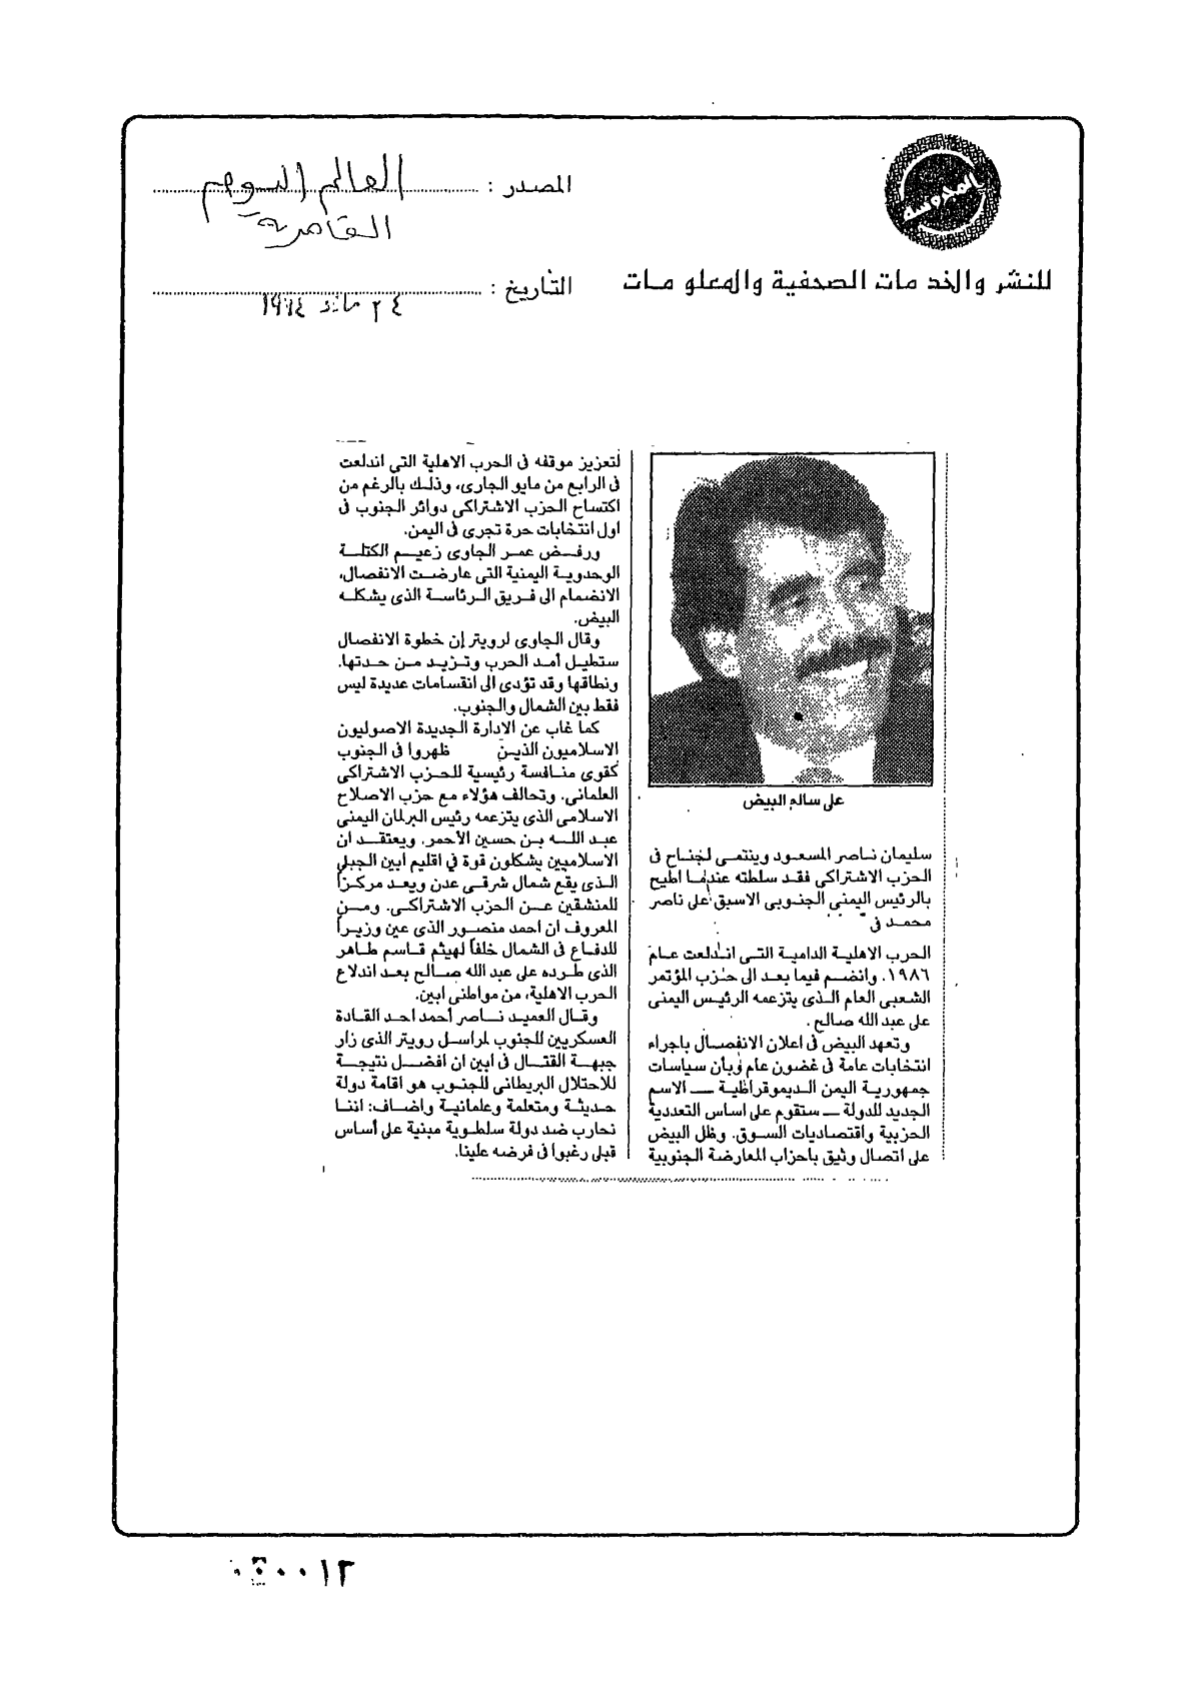 المحروسة
للنشر والخدمات الصحفية والمعلومات
المصدر : العالم اليوم
القاهرية
التأريخ : ٢٤ مايو ١٩٩٤
على سالم البيض
سليمان ناصر المسعود وينتمى لجناح فى
الحزب الاشتراكى فقد سلطته عندما اطيح
بالرئيس اليمنى الجنوبى الاسبق على ناصر
محمد فى
الحرب الاهلية الدامية التى اندلعت عام
١٩٨٦. وانضم فيما بعد الى حزب المؤتمر
الشعبى العام الذى يتزعمه الرئيس اليمنى
على عبد الله صالح.
وتعهد البيض فى اعلان الانفصال باجراء
انتخابات عامة فى غضون عام وبأن سياسات
جمهورية اليمن الديموقراطية ــ الاسم
الجديد للدولة ــ ستقوم على اساس التعددية
الحزبية واقتصاديات السوق. وظل البيض
على اتصال وثيق باحزاب المعارضة الجنوبية
لتعزيز موقفه فى الحرب الاهلية التى اندلعت
فى الرابع من مايو الجارى، وذلك بالرغم من
اكتساح الحزب الاشتراكى دوائر الجنوب فى
اول انتخابات حرة تجرى فى اليمن.
ورفض عمر الجاوى زعيم الكتلة
الوحدوية اليمنية التى عارضت الانفصال،
الانضمام الى فريق الرئاسة الذى يشكله
البيض.
وقال الجاوى لرويتر إن خطوة الانفصال
ستطيل أمد الحرب وتزيد من حدتها.
ونطاقها وقد تؤدى الى انقسامات عديدة ليس
فقط بين الشمال والجنوب.
كما غاب عن الادارة الجديدة الاصوليون
الاسلاميون الذين ظهروا فى الجنوب
كقوى منافسة رئيسية للحزب الاشتراكى
العلمانى. وتحالف هؤلاء مع حزب الاصلاح
الاسلامى الذى يتزعمه رئيس البرلمان اليمنى
عبد الله بن حسين الأحمر. ويعتقد ان
الاسلاميين يشكلون قوة فى اقليم ابين الجبلى
الذى يقع شمال شرقى عدن ويعد مركزاً
للمنشقين عن الحزب الاشتراكى. ومن
المعروف ان احمد منصور الذى عين وزيراً
للدفاع فى الشمال خلفاً لهيثم قاسم طاهر
الذى طرده على عبد الله صالح بعد اندلاع
الحرب الاهلية، من مواطنى ابين.
وقال العميد ناصر أحمد احد القادة
العسكريين للجنوب لمراسل رويتر الذى زار
جبهة القتال فى ابين ان افضل نتيجة
للاحتلال البريطانى للجنوب هو اقامة دولة
حديثة ومتعلمة وعلمانية واضاف: اننا
نحارب ضد دولة سلطوية مبنية على أساس
قبلى رغبوا فى فرضه علينا.